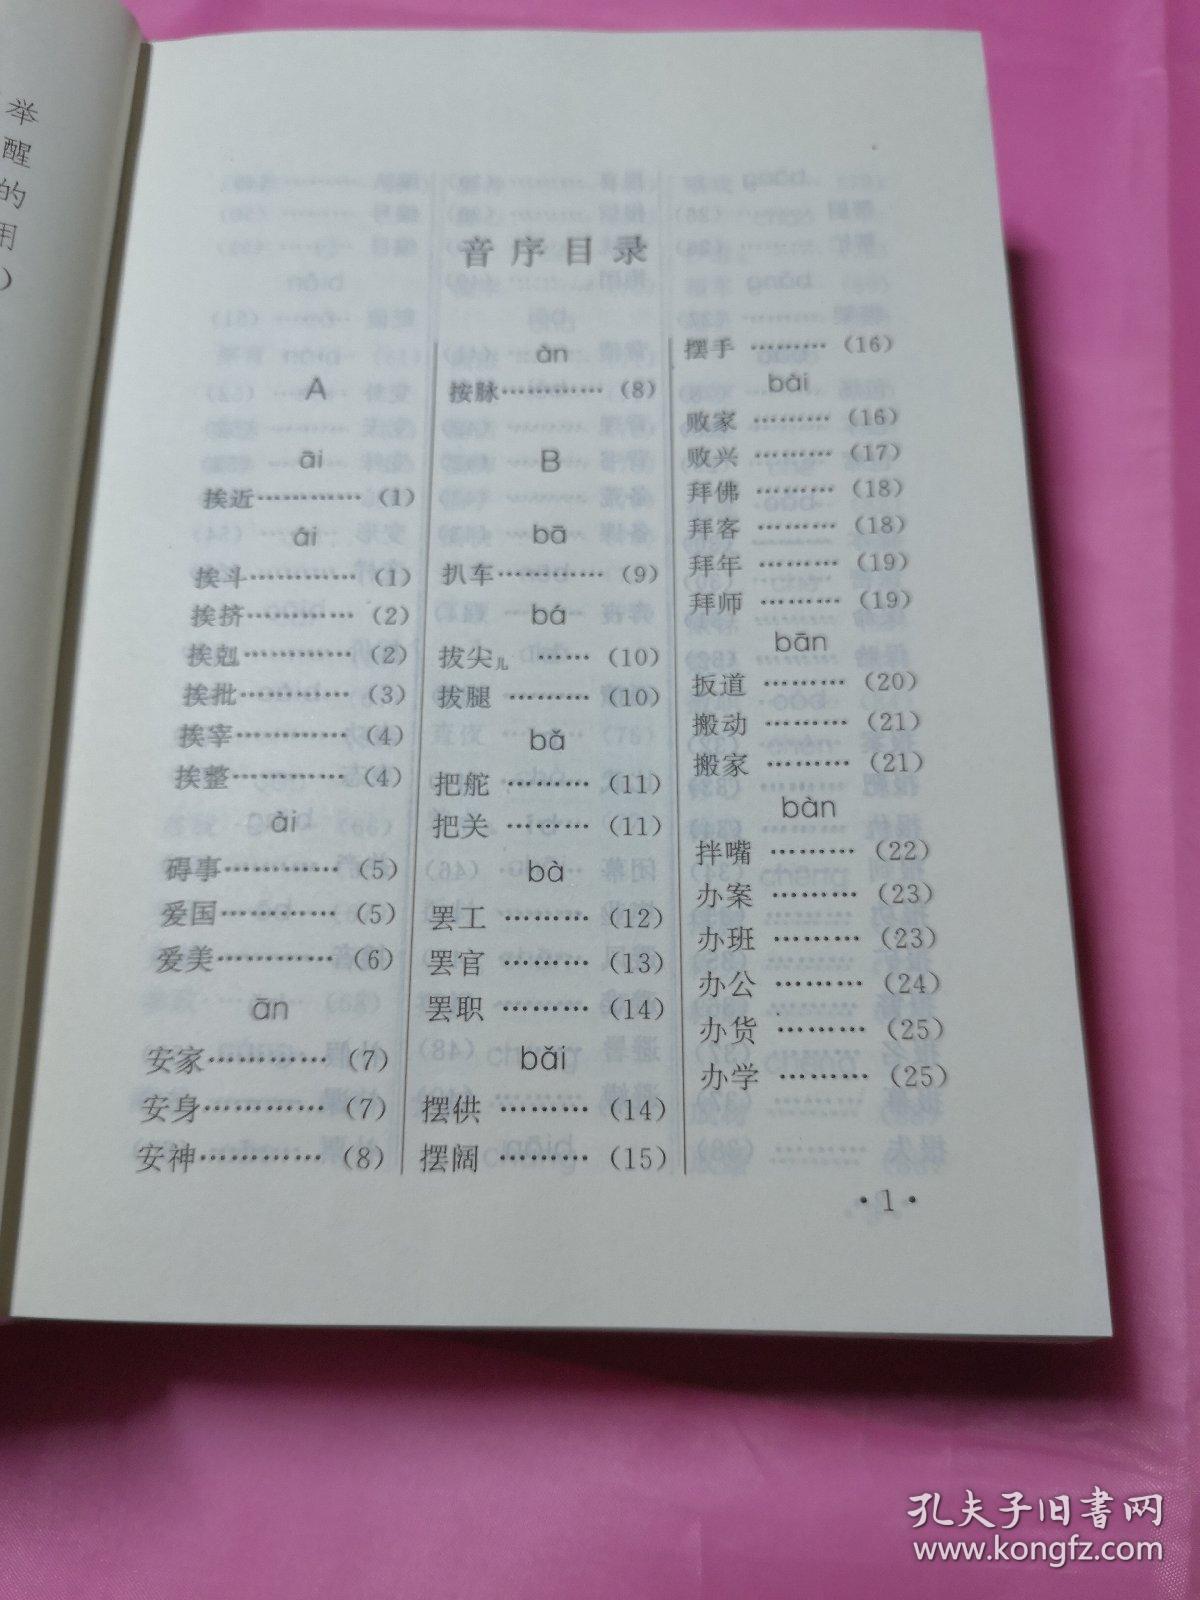 举
醒
的
用
)
音序目录
A
āi
挨近…………(1)
ái
挨斗…………(1)
挨挤…………(2)
挨剋…………(2)
挨批…………(3)
挨宰…………(4)
挨整…………(4)
ài
碍事…………(5)
爱国…………(5)
爱美…………(6)
ān
安家…………(7)
安身…………(7)
安神…………(8)
àn
按脉…………(8)
B
bā
扒车…………(9)
bá
拔尖儿 ……(10)
拔腿 ………(10)
bǎ
把舵 ………(11)
把关 ………(11)
bà
罢工 ………(12)
罢官 ………(13)
罢职 ………(14)
bǎi
摆供 ………(14)
摆阔 ………(15)
摆手 ………(16)
bài
败家 ………(16)
败兴 ………(17)
拜佛 ………(18)
拜客 ………(18)
拜年 ………(19)
拜师 ………(19)
bān
扳道 ………(20)
搬动 ………(21)
搬家 ………(21)
bàn
拌嘴 ………(22)
办案 ………(23)
办班 ………(23)
办公 ………(24)
办货 ………(25)
办学 ………(25)
·1·
孔夫子旧书网
www.kongfz.com